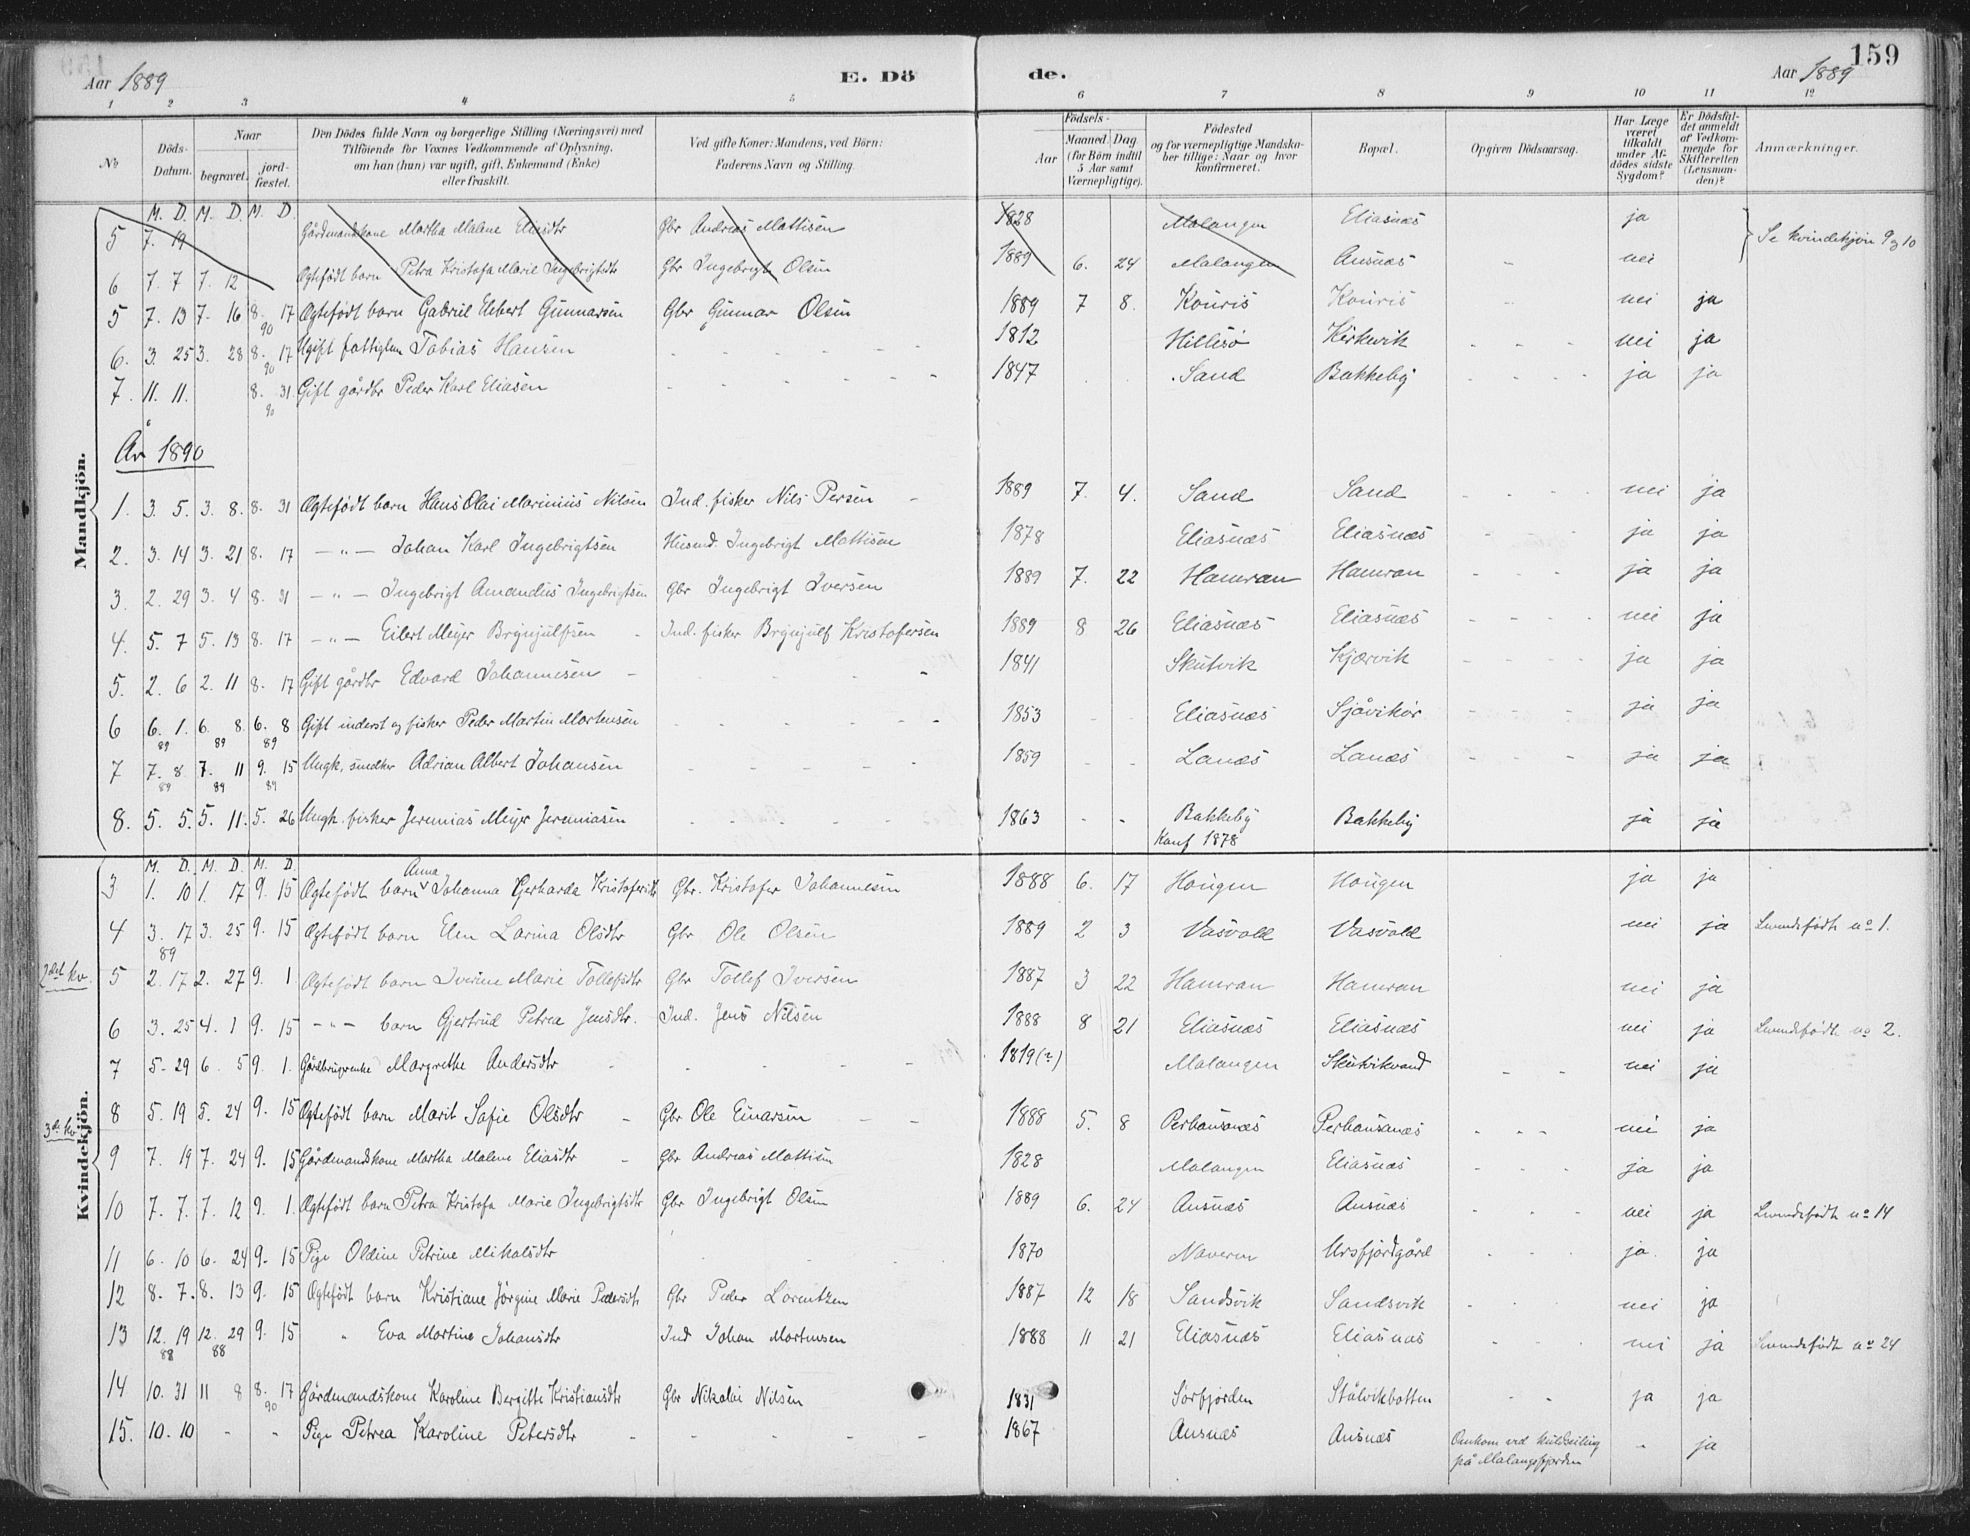 159
Aar 1889 E. Dö de. Aar 1889
1 2 3 4 5 6 7 8 9 10 11 12
No Döds-Datum. Naar begravet. jordfæstet. Den Dödes fulde Navn og borgerlige Stilling (Næringsvei) med Tilföiende for Voxnes Vedkommende af Oplysning, om han (hun) var ugift, gift, Enkemand (Enke) eller fraskilt. Ved gifte Koner: Mandens, ved Börn: Faderens Navn og Stilling. Födsels- Aar Maaned. Dag (for Börn indtil 5 Aar samt Værnepligtige). Födested og for værnepligtige Mandskaber tillige: Naar og hvor konfirmeret. Bopæl. Opgiven Dödsaarsag. Har Læge været tilkaldt under Afdödes sidste Sygdom? Er Dödsfaldet anmeldt af Vedkommende for Skifteretten (Lensmanden)? Anmærkninger.
Mandkjön.
M. D. M. D. M. D.
5 7. 19 Gårdmandskone Martha Malene Eliasdtr Gbr Andreas Mattisen 1828 Malangen Eliasnæs ja Se kvindekjön 9 og 10
6 7. 7 7. 12 Ægtefødt barn Petra Kristofa Marie Ingebrigtsdtr Gbr Ingebrigt Olsen 1889 6. 24 Malangen Ansnæs - nei
5 7. 13 7. 16 8. 17 90 Ægtefødt barn Gabriel Elbert Gunnarsen Gbr Gunnar Olsen 1889 7 8. Kouris Kouris - nei ja
6. 3. 25 3. 28 8. 17 90 Ugift fattiglem Tobias Hansen - - - - 1812 Hillesø Kirkevik - - - nei ja
7. 11. 11. 8. 31. 90 Gift gårdbr Peder Karl Eliasen - - - - 1847 Sand Bakkeby - - - ja ja
År 1890
1. 3. 5. 3. 8. 8. 31 Ægtefødt barn Hans Olai Marinius Nilsen Ind. fisker Nils Persen - 1889 7. 4. Sand Sand - - - nei ja
2. 3. 14 3. 21 8. 17 -"- Johan Karl Ingebrigtsen Husmd. Ingebrigt Mattisen 1878 Eliasnæs Eliasnæs - ja ja
3. 2. 29 3. 4 8. 31 -"- Ingebrigt Amandus Ingebrigtsen Gbr Ingebrigt Iversen 1889 7. 22 Hamran Hamran - - - ja ja
4. 5. 7 5. 13 8. 17 -"- Eilert Meyer Brynjulfsen - Ind. fisker Brynjulf Kristofersen 1889 8 26 Eliasnæs Eliasnæs - - - nei ja
5. 2. 6 2. 11 8. 17 Gift gårdbr Edvard Johannesen - - - - 1841 Skutvik Kjærvik - - - ja ja
6 6. 1. 89 6. 8. 89 6. 8 89 Gift inderst og fisker Peder Martin Mortensen - - - 1853 - - Eliasnæs Sjåvikør - - - ja ja
7 7. 8 89 7. 11 89 9. 15 89 Ungk. snedker Adrian Albert Johansen - - - 1859 - - Lanæs Lanæs - - - ja ja
8. 5. 5. 5. 11. 5. 26 Ungk. fisker Jeremias Meyer Jeremiasen - - - 1863 - - Bakkeby Bakkeby ja ja
Konf 1878
Kvindekjön.
M. D. M. D. M. D
3 1. 10 1. 17 9. 15 Ægtefødt barn Anna Johanna Gerharda Kristofersdtr Gbr. Kristofer Johannesen 1888 6. 17 Hougen Hougen ja ja
4 3. 17 89 3. 25 9. 15 Ægtefødt barn Elen Larina Olsdtr Gbr Ole Olsen 1889 2 3 Vasvold Vasvold nei ja Levendefødt no 1.
2det kv. 5 2. 17 2. 27 9. 1 Ægtefødt barn Iverine Marie Tollefsdtr Gbr Tollef Iversen 1887 3 22 Hamran Hamran nei ja
6 3. 25 4. 1 9. 15 -"- barn Gjertrud Petrea Jensdtr. Ind. Jens Nilsen 1888 8 21 Eliasnæs Eliasnæs nei ja Levendefødt no 2.
7 5- 29 6. 5 9. 1. Gårdbrugerenke Margrethe Andersdtr - - - 1819 (?) Malangen Skutvikvand - - nei ja
3de kv 8 5. 19 5. 24 9. 15 Ægtefødt barn Marit Sofie Olsdtr - Gbr Ole Einarsen - - 1888 5. 8 Perhansanæs Perhansanæs - - - nei ja
9 7. 19 7. 24 9. 15 Gårdmandskone Martha Malene Eliasdtr - Gbr Andreas Mattisen 1828 Malangen Eliasnæs - - - ja ja
10 7. 7. 7. 12 9. 1. Ægtefødt barn Petra Kristofa Marie Ingebrigtsdtr Gbr Ingebrigt Olsen 1889 6. 24 Ansnæs Ansnæs - - - nei ja Levendefødt no 14
11 6. 10 6. 24 9. 15 Pige Oldine Petrine Mikalsdtr - - 1870 Naveren Ursfjordgård - - - ja. ja
12 8. 7. 8. 13 9. 15 Ægtefødt barn Kristiane Jörgine Marie Pedersdtr Gbr Peder Lorentzen 1887 12 18 Sandsvik Sandsvik - - - nei ja
13 12. 19 88 12. 29 88 9. 15 " Eva Martine Johansdtr Ind Johan Mortensen 1888 11 21 Eliasnæs Eliasnæs - - - nei ja Levendefødt no 24
14 10. 31 11 8 8. 17 90 Gårdmandskone Karoline Bergitte Kristiansdtr Gbr Nikolai Nilsen 1831 Sørfjorden Stålvikbotten - - ja ja
15. 10. 10 - - Pige Petrea Karoline Petersdtr - - - - 1867 Ansnæs Ansnæs Omkom ved kuldseiling - ja
på Malangsfjorden